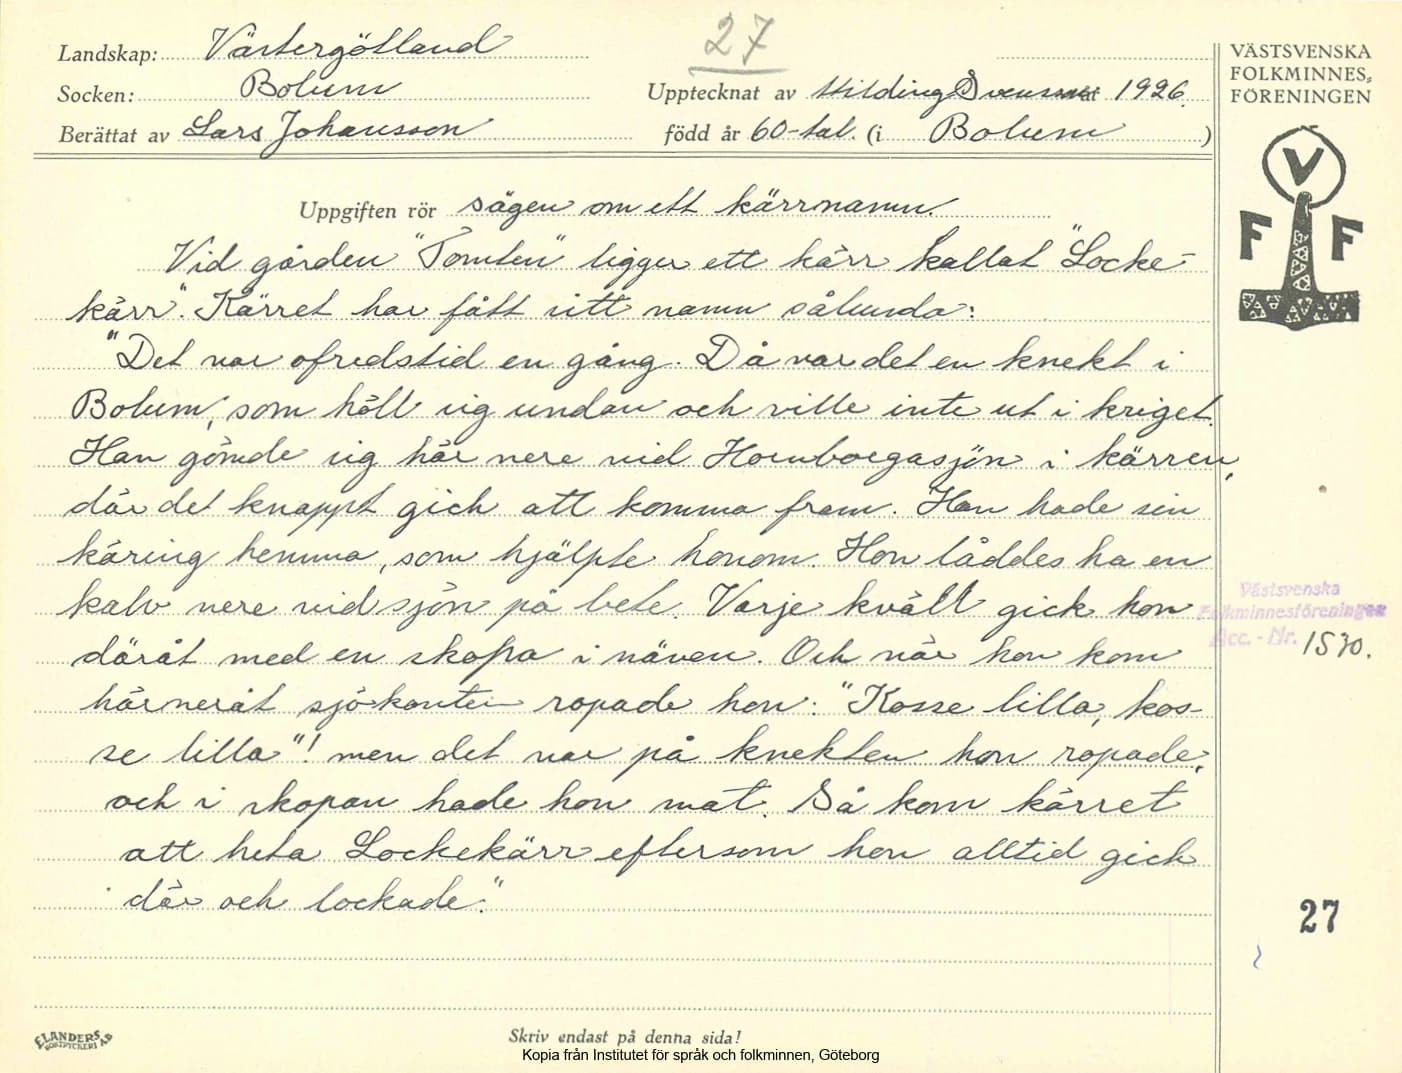 27
Landskap: Västergötland
Socken: Bolum
Upptecknat av Hilding Svensson år 1926.
Berättat av Lars Johansson
född år 60-tal. (i Bolum)
VÄSTSVENSKA
FOLKMINNES-
FÖRENINGEN
V
F F
Uppgiften rör sägen om ett kärrnamn.
Vid gården "Tomten" ligger ett kärr kallat "Locke-
kärr". Kärret har fått sitt namn sålunda:
"Det var ofredstid en gång. Då var det en knekt i
Bolum, som höll sig undan och ville inte ut i kriget.
Han gömde sig här nere vid Hornborgasjön i kärren,
där det knappt gick att komma fram. Han hade sin
käring hemma, som hjälpte honom. Hon låddes ha en
kalv nere vid sjön på bete. Varje kväll gick hon
däråt med en skopa i näven. Och när hon kom
härneråt sjökanten ropade hon: "Kosse lilla, kos-
se lilla"! men det var på knekten hon ropade,
och i skopan hade hon mat. Så kom kärret
att heta Lockekärr eftersom hon alltid gick
där och lockade."
Västsvenska
Folkminnesföreningen
Acc. - Nr. 1530.
27
ELANDERS
BOKTRYCKERI AB
Skriv endast på denna sida!
Kopia från Institutet för språk och folkminnen, Göteborg